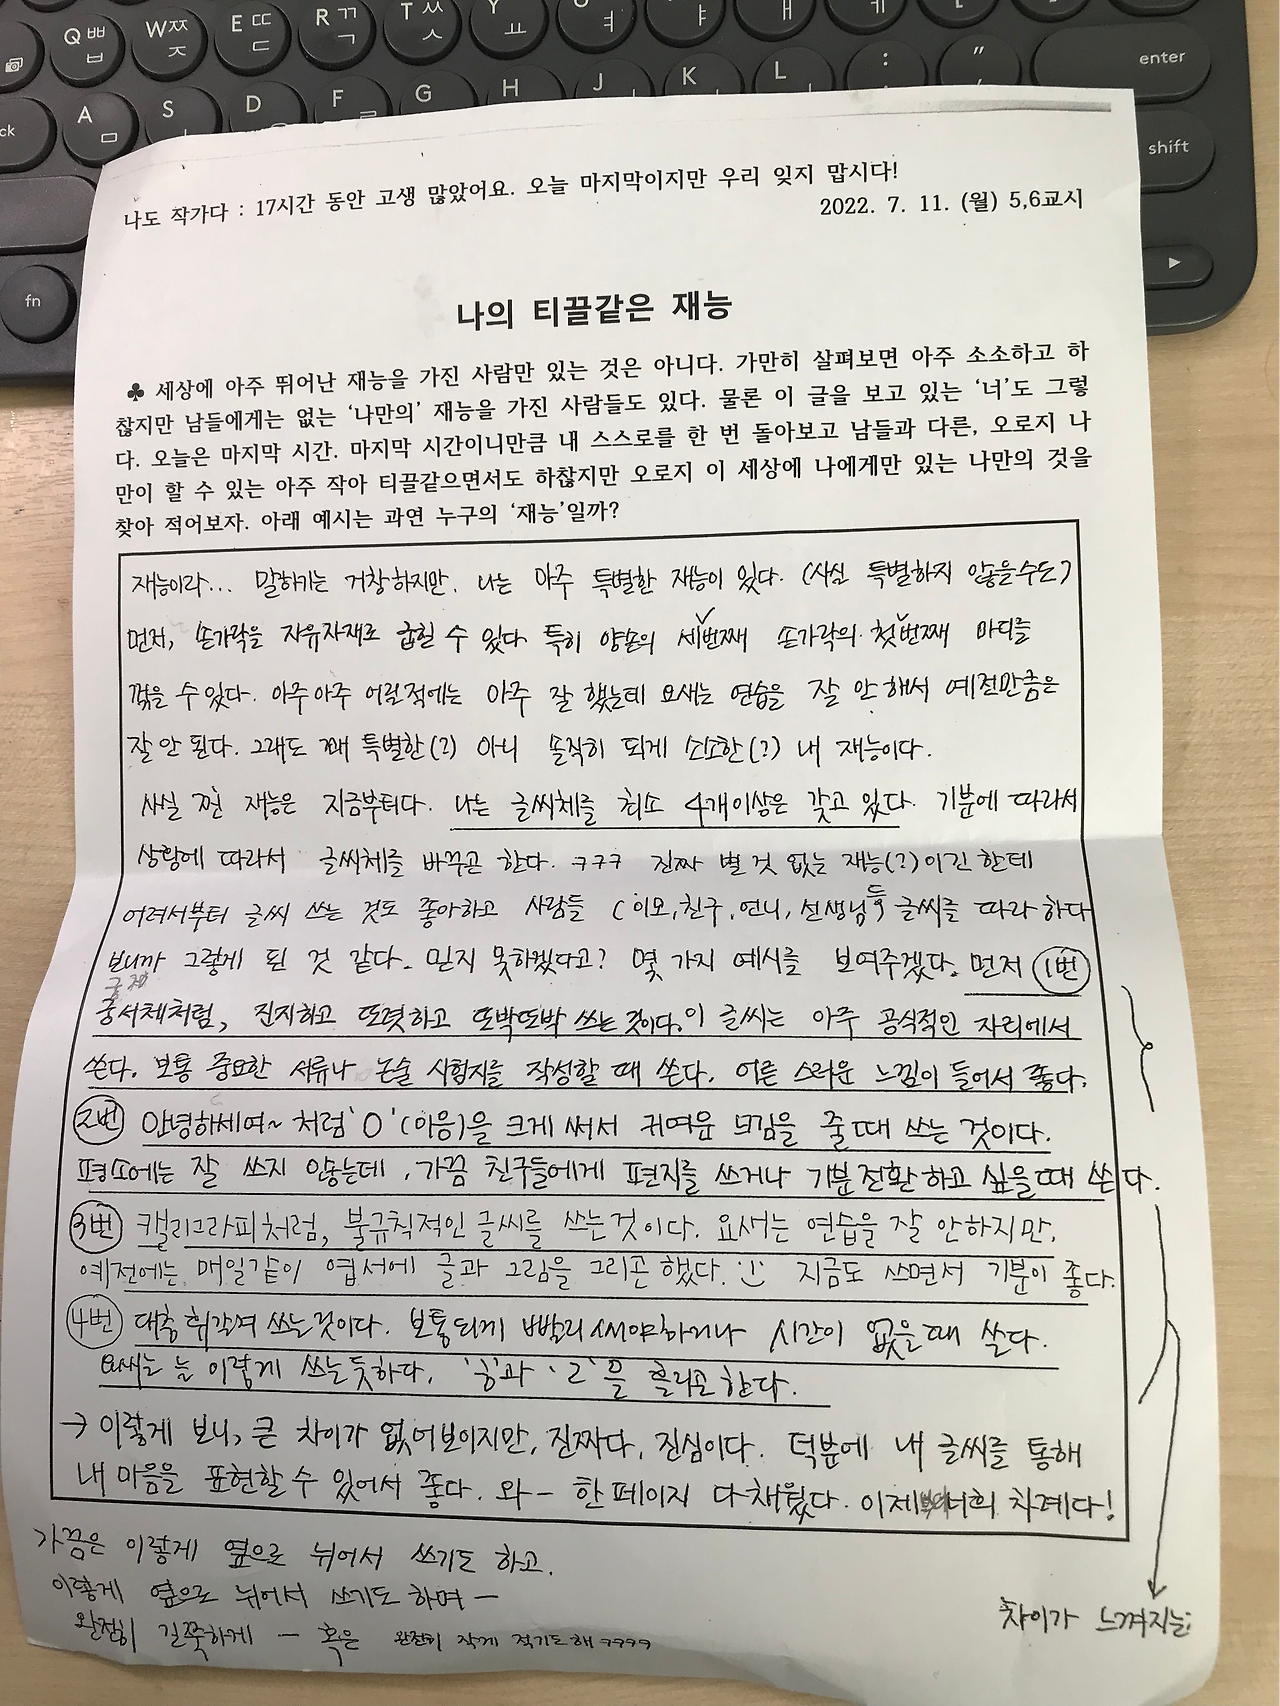 Q ㅃ ㅂ W ㅉ ㅈ E ㄸ ㄷ R ㄲ ㄱ T ㅆ ㅅ Y ㅛ ㅕ ㅑ ㅐ ㅔ
A ㅁ S D F ㄹ G H J K L : " enter
shift
fn
나도 작가다 : 17시간 동안 고생 많았어요. 오늘 마지막이지만 우리 잊지 맙시다!
2022. 7. 11. (월) 5,6교시
나의 티끌같은 재능
♣ 세상에 아주 뛰어난 재능을 가진 사람만 있는 것은 아니다. 가만히 살펴보면 아주 소소하고 하
찮지만 남들에게는 없는 '나만의' 재능을 가진 사람들도 있다. 물론 이 글을 보고 있는 '너'도 그렇
다. 오늘은 마지막 시간. 마지막 시간이니만큼 내 스스로를 한 번 돌아보고 남들과 다른, 오로지 나
만이 할 수 있는 아주 작아 티끌같으면서도 하찮지만 오로지 이 세상에 나에게만 있는 나만의 것을
찾아 적어보자. 아래 예시는 과연 누구의 '재능'일까?
재능이라... 말하기는 거창하지만, 나는 아주 특별한 재능이 있다. (사실 특별하지 않을수도)
먼저, 손가락을 자유자재로 굽힐 수 있다. 특히 양손의 세번째 손가락의 첫번째 마디를
꺾을 수 있다. 아주아주 어릴적에는 아주 잘 했는데 요새는 연습을 잘 안해서 예전만큼은
잘 안 된다. 그래도 꽤 특별한(?) 아니 솔직히 되게 소소한(?) 내 재능이다.
사실 찐 재능은 지금부터다. 나는 글씨체를 최소 4개이상은 갖고 있다. 기분에 따라서
상황에 따라서 글씨체를 바꾸곤 한다. ㅋㅋㅋ 진짜 별 것 없는 재능(?)이긴 한데
어려서부터 글씨 쓰는 것도 좋아하고 사람들 (이모, 친구, 언니, 선생님 등) 글씨를 따라 하다
보니까 그렇게 된 것 같다. 믿지 못하겠다고? 몇 가지 예시를 보여주겠다. 먼저 1번
궁서체처럼, 진지하고 또렷하고 또박또박 쓰는 것이다. 이 글씨는 아주 공식적인 자리에서
쓴다. 보통 중요한 서류나 논술 시험지를 작성할 때 쓴다. 어른 스러운 느낌이 들어서 좋다.
2번 안녕하세여~ 처럼 'O'(이응)을 크게 써서 귀여운 느낌을 줄때 쓰는 것이다.
평소에는 잘 쓰지 않는데, 가끔 친구들에게 편지를 쓰거나 기분전환하고 싶을때 쓴다.
3번 캘리그라피처럼, 불규칙적인 글씨를 쓰는것이다. 요새는 연습을 잘 안하지만,
예전에는 매일같이 엽서에 글과 그림을 그리곤 했다. 지금도 쓰면서 기분이 좋다.
4번 대충 휘갈겨 쓰는것이다. 보통 되게 빨리 써야하거나 시간이 없을때 쓴다.
요새는 늘 이렇게 쓰는듯하다. 'ㅎ'과 'ㄹ'을 흘리곤 한다.
→ 이렇게 보니, 큰 차이가 없어보이지만, 진짜다, 진심이다. 덕분에 내 글씨를 통해
내 마음을 표현할 수 있어서 좋다. 와- 한페이지 다 채웠다. 이제 너희 차례다!
가끔은 이렇게 옆으로 뉘어서 쓰기도 하고.
이렇게 옆으로 뉘어서 쓰기도 하며 -
완전히 길쭉하게 - 혹은 완전히 작게 적기도 해 ㅋㅋㅋㅋ
차이가 느껴지는